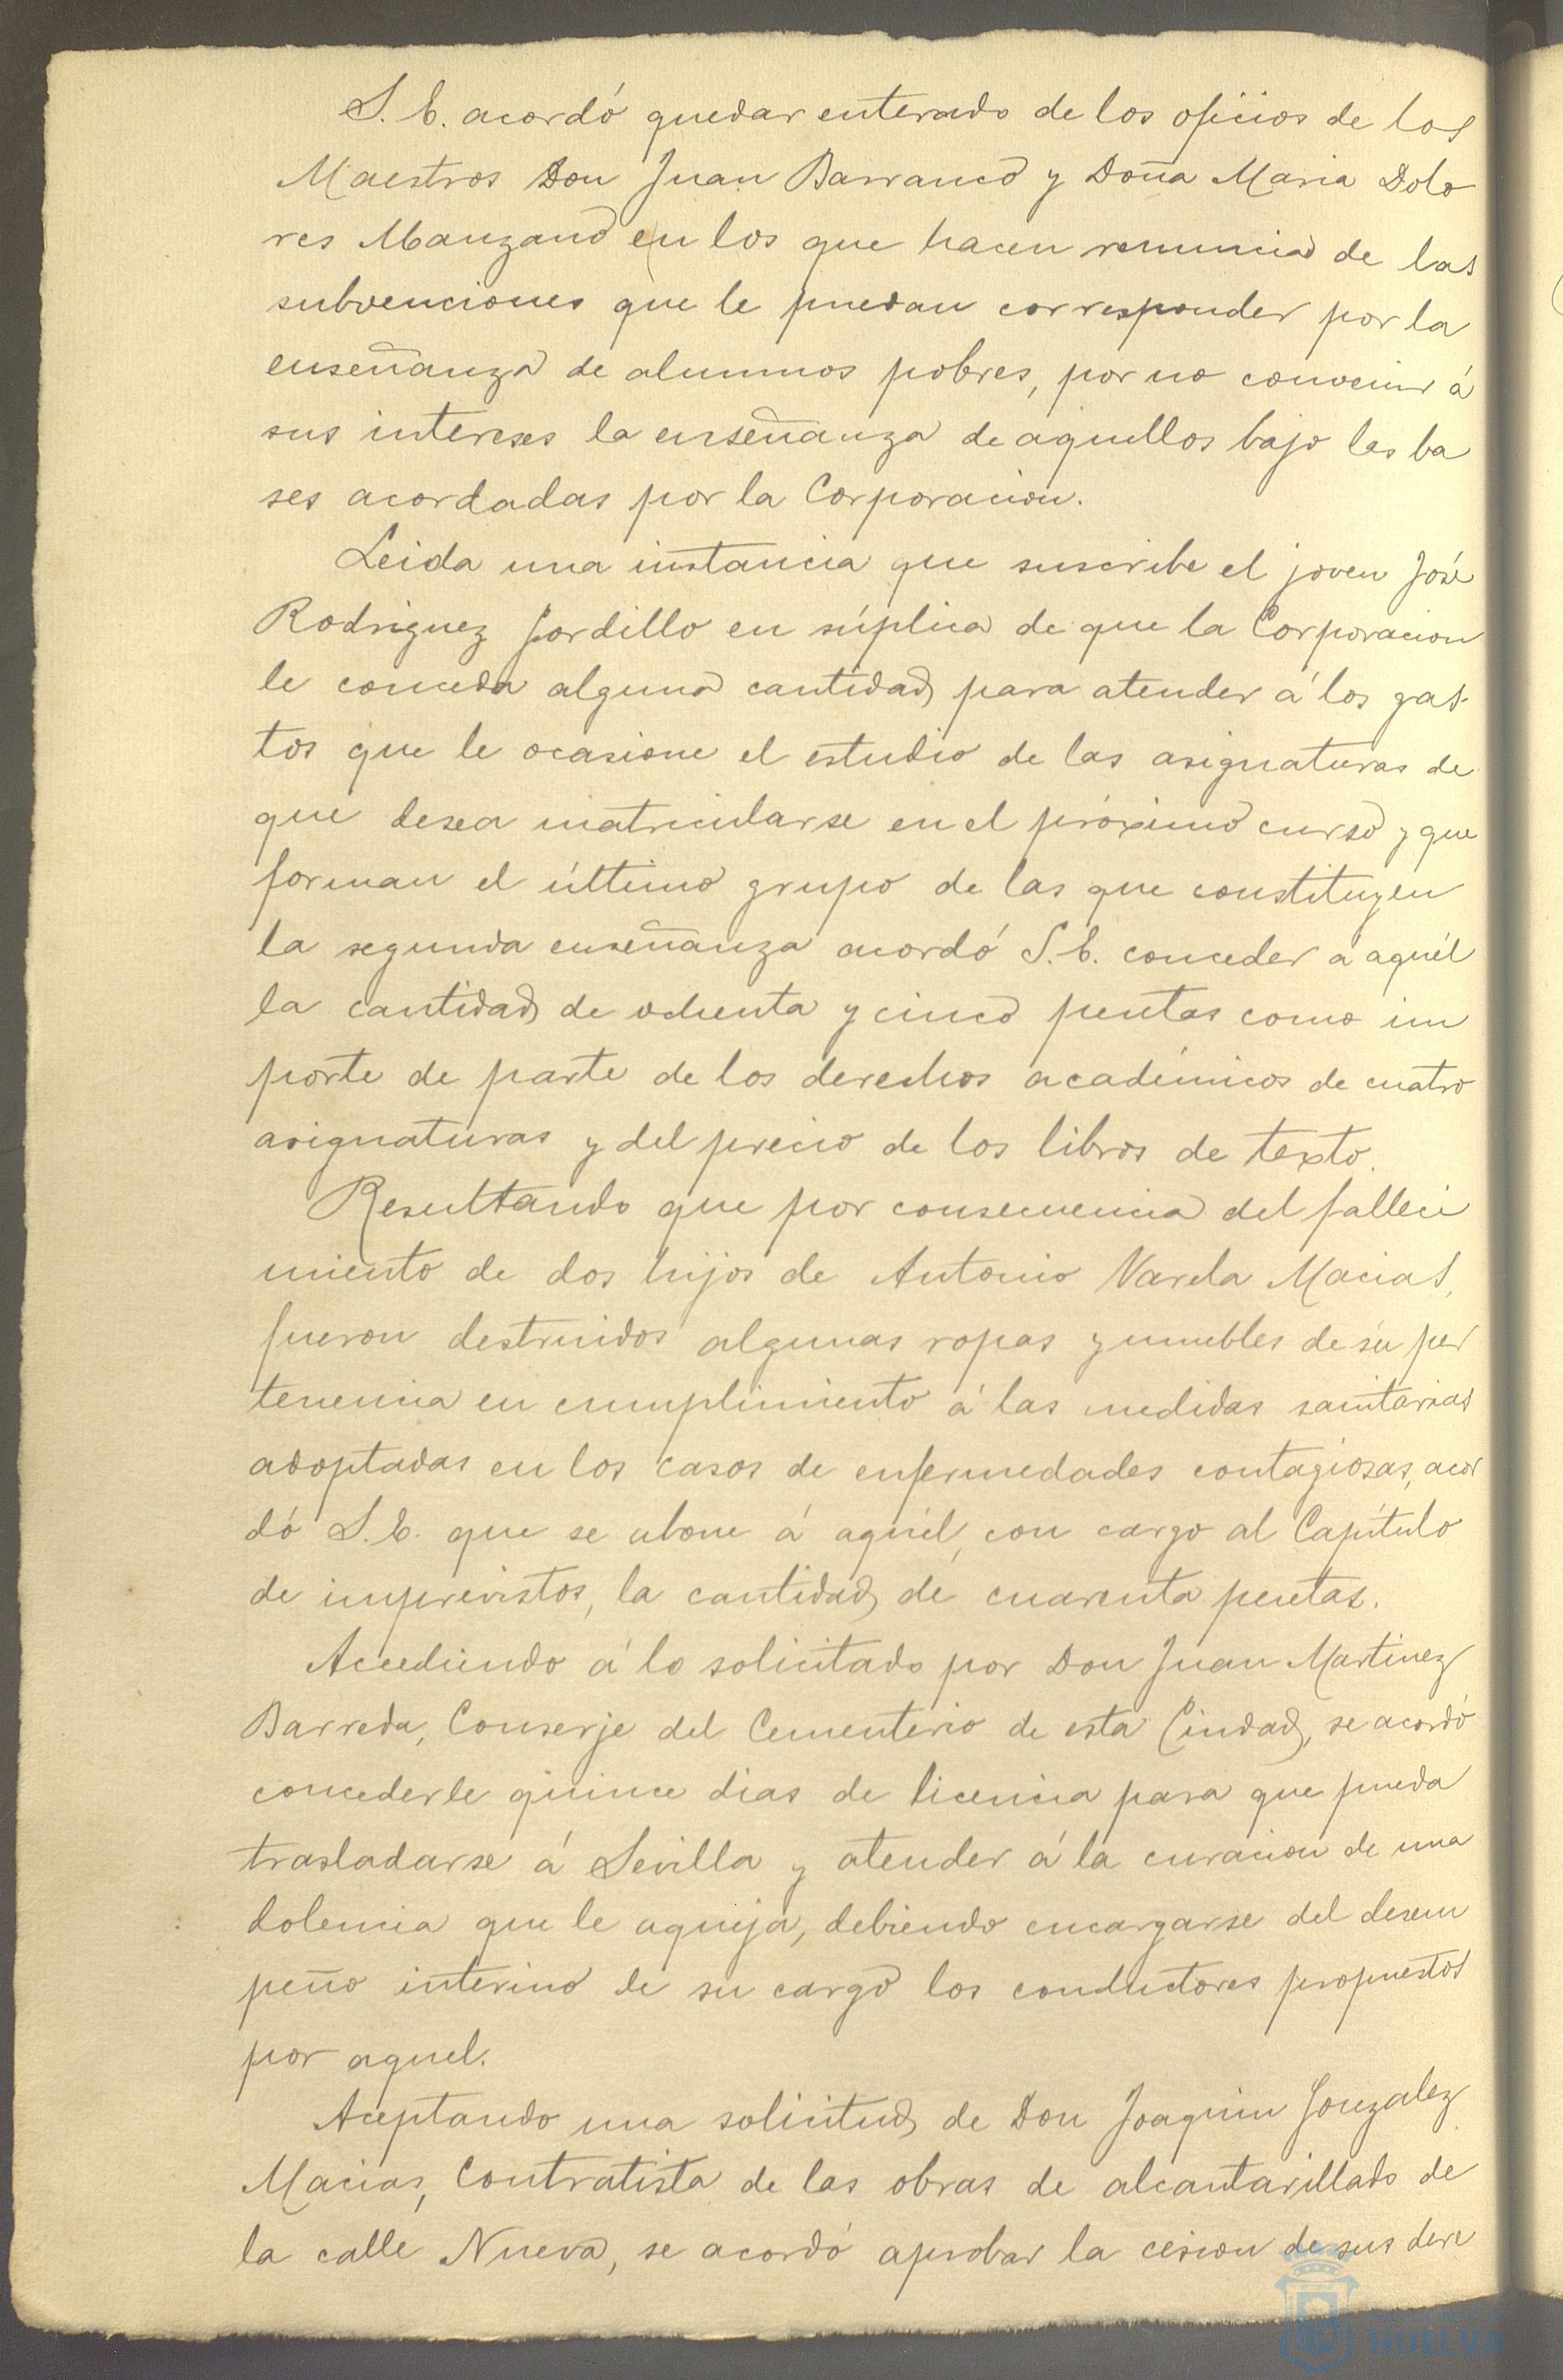 S. E. acordó quedar enterado de los oficios de los
Maestros Don Juan Barranco y Doña Maria Dolo
res Manzano en los que hacen renuncia de las
subvenciones que le puedan corresponder por la
enseñanza de alumnos pobres, por no convenir á
sus intereses la enseñanza de aquellos bajo las ba
ses acordadas por la Corporacion.
Leida una instancia que suscribe el joven José
Rodriguez Gordillo en súplica de que la Corporacion
le conceda alguna cantidad para atender á los gas
tos que le ocasione el estudio de las asignaturas de
que desea matricularse en el próximo curso y que
forman el último grupo de las que constituyen
la segunda enseñanza acordó S. E. conceder a aquél
la cantidad de ochenta y cinco pesetas como im
porte de parte de los derechos académicos de cuatro
asignaturas y del precio de los libros de texto.
Resultando que por consecuencia del falleci
miento de dos hijos de Antonio Varela Macias,
fueron destruidos algunas ropas y muebles de su per
tenencia en cumplimiento á las medidas sanitarias
adoptadas en los casos de enfermedades contagiosas, acor
dó S. E. que se abone á aquél, con cargo al Capítulo
de imprevistos, la cantidad de cuarenta pesetas.
Accediendo á lo solicitado por Don Juan Martinez
Barreda, Conserje del Cementerio de esta Ciudad, se acordó
concederle quince dias de licencia para que pueda
trasladarse á Sevilla y atender á la curacion de una
dolencia que le aqueja, debiendo encargarse del desem
peño interino de su cargo los conductores propuestos
por aquel.
Aceptando una solicitud de Don Joaquin Gonzalez
Macias, Contratista de las obras de alcantarillado de
la calle Nueva, se acordó aprobar la cesion de sus dere
HUELVA